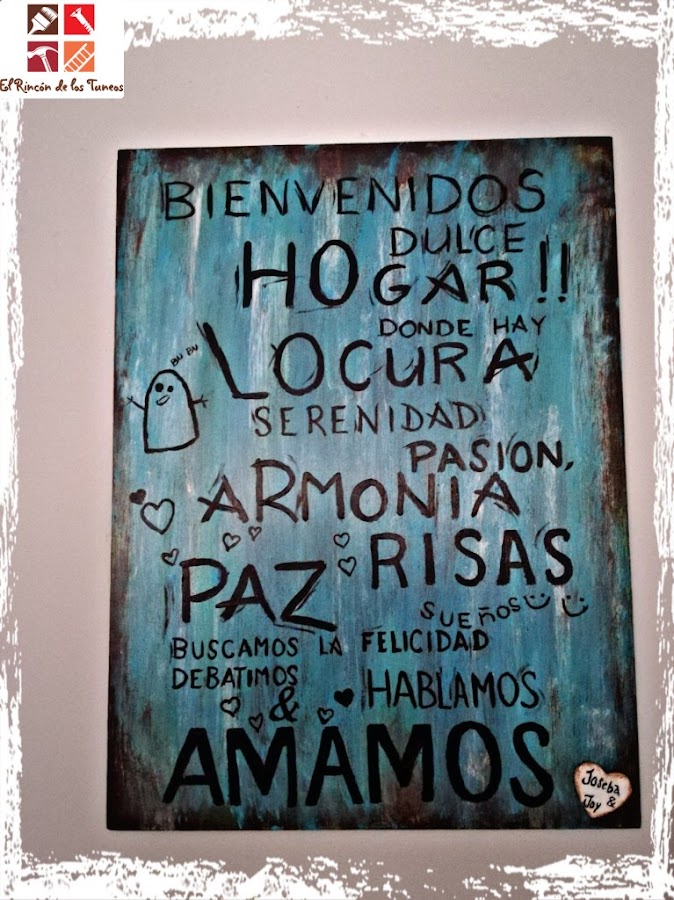 El Rincón de los Tuneos
BIENVENIDOS
DULCE
HOGAR!!
DONDE HAY
BU BU
LOCURA
SERENIDAD
PASION,
ARMONIA
PAZ RISAS
SUEÑOS
BUSCAMOS LA FELICIDAD
DEBATIMOS
& HABLAMOS
AMAMOS
Joseba
& Joy